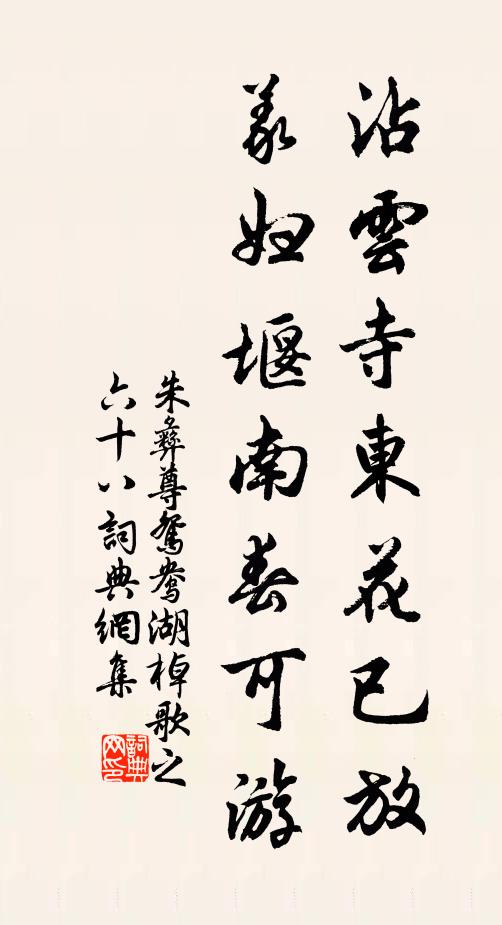 沾雲寺東花已放
羕婦堰南春可游
朱彝尊鴛鴦湖棹歌之
六十八詞典網集
詞典
网印